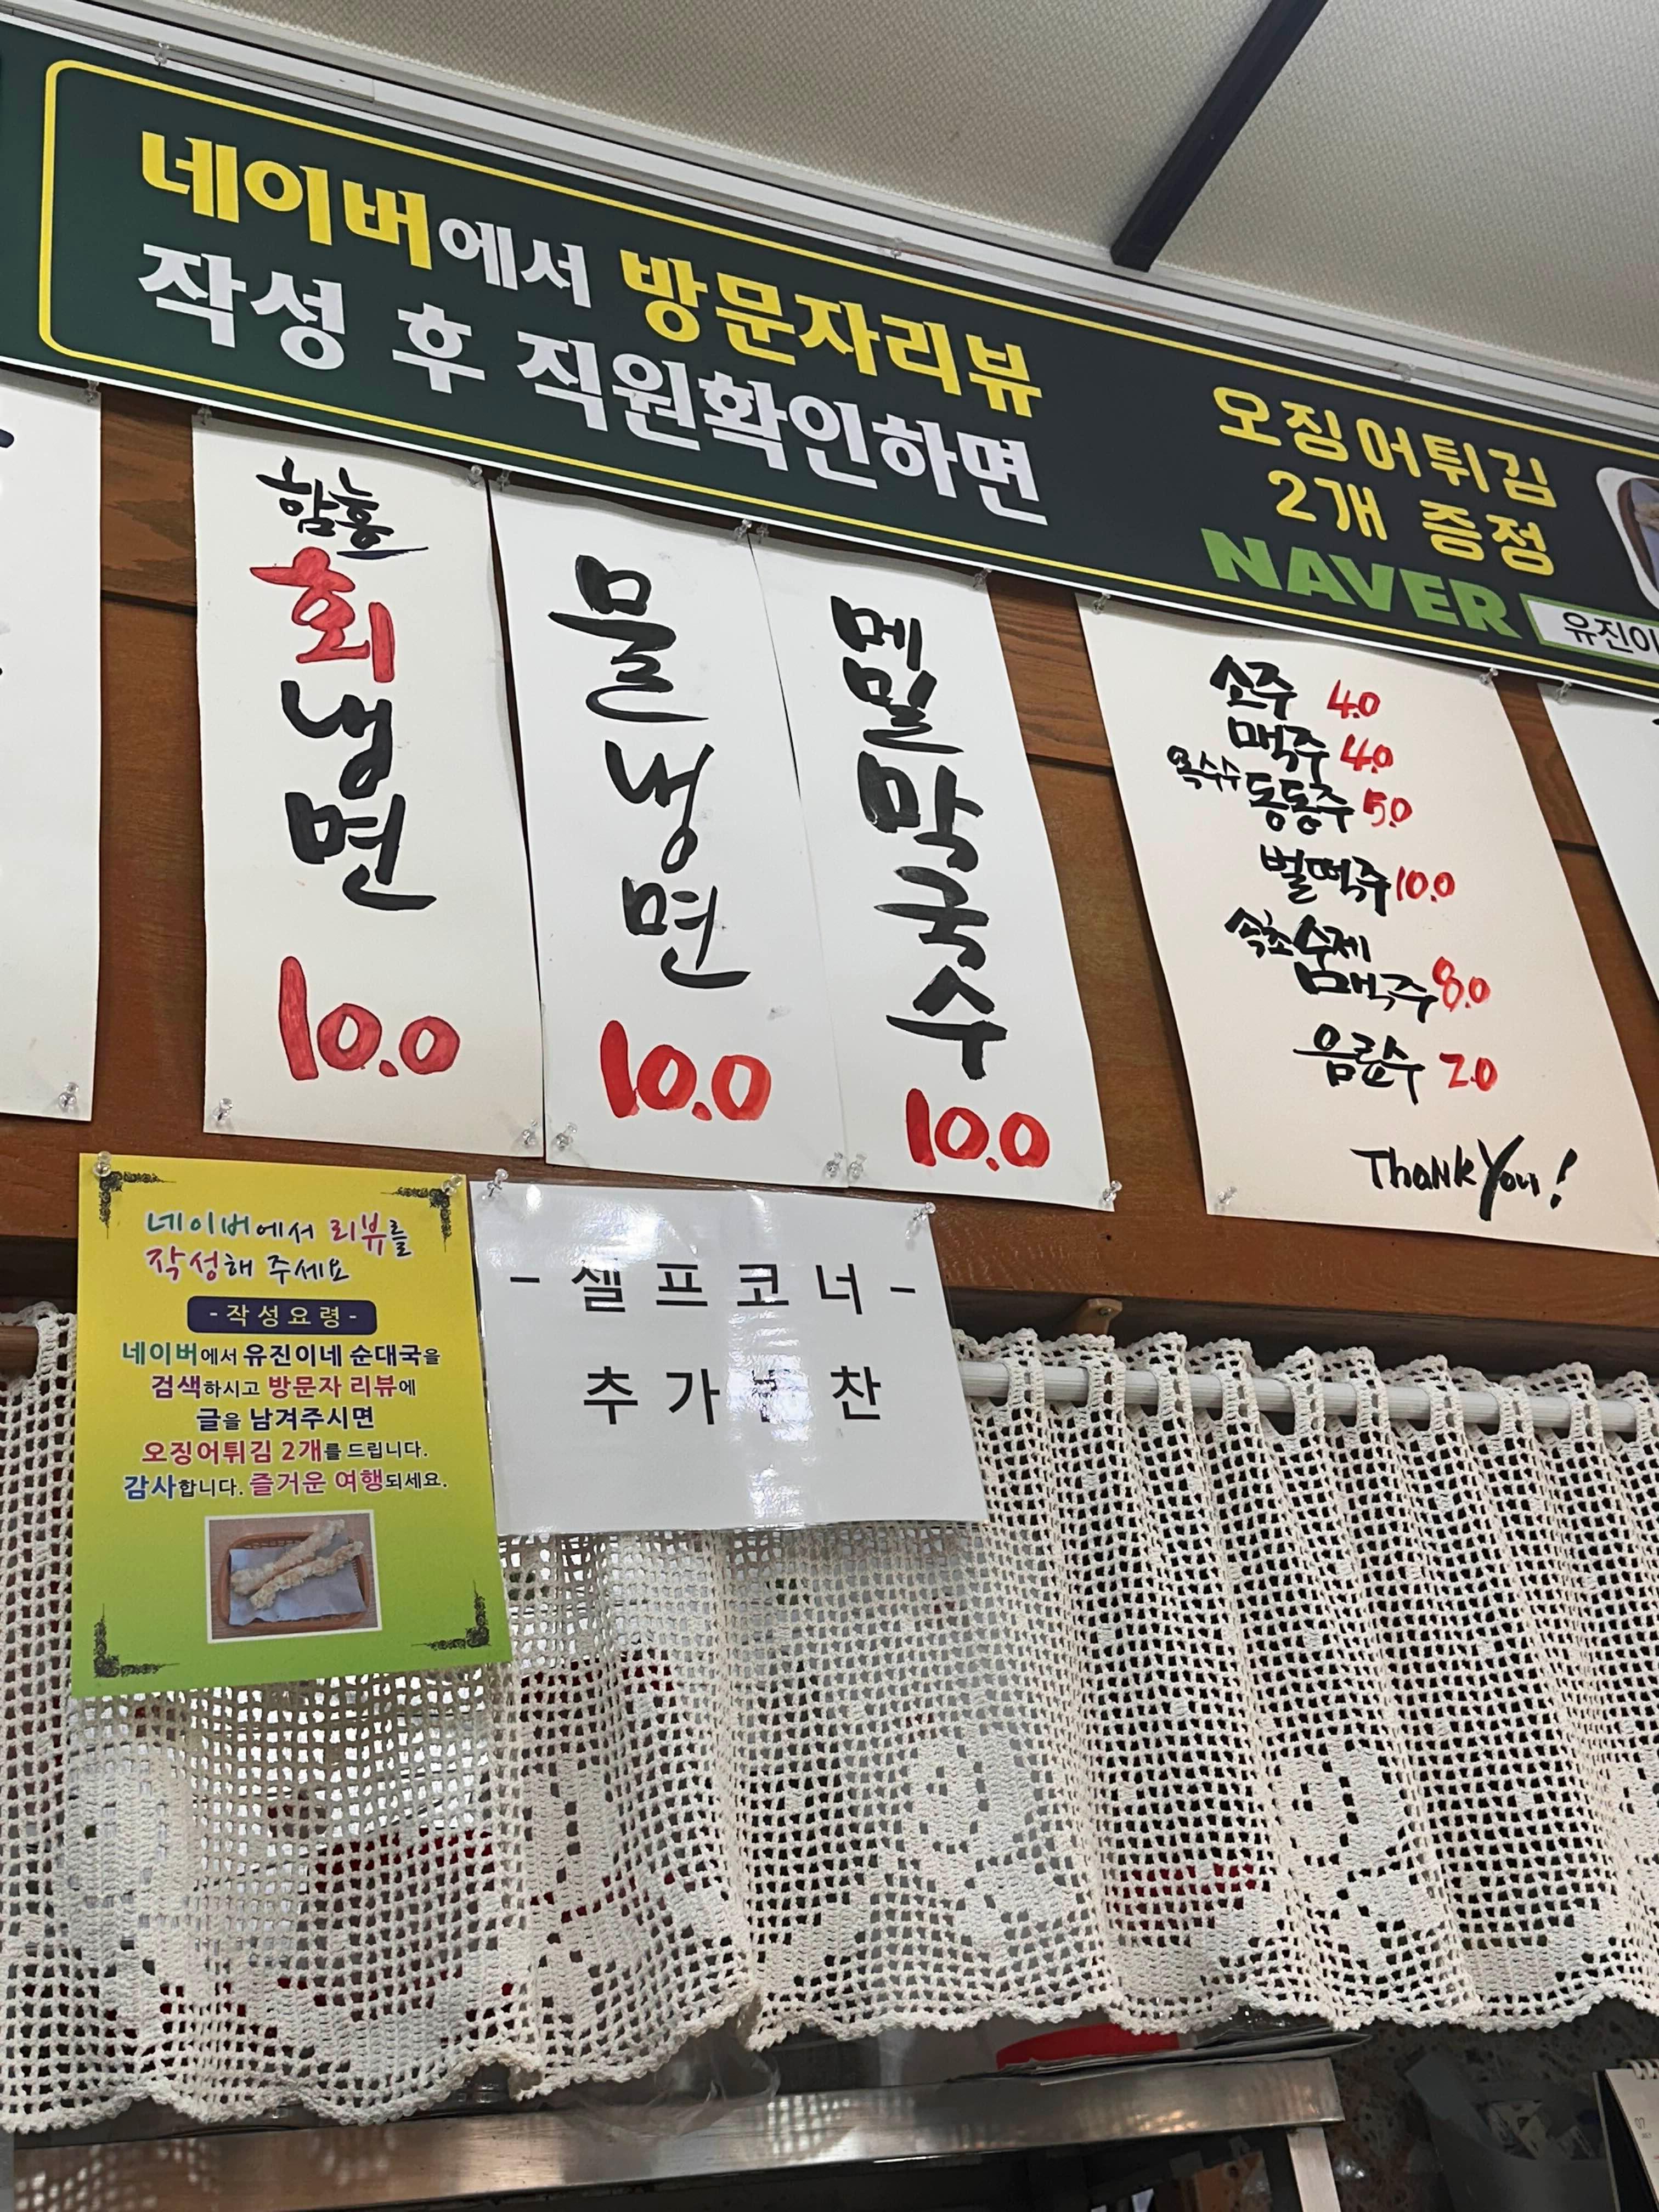 네이버에서 방문자리뷰
작성 후 직원확인하면
오징어튀김
2개 증정
NAVER
유진이
함흥
회
냉
면
10.0
물
냉
면
10.0
메
밀
막
국
수
10.0
소주 4.0
맥주 4.0
옥수수 동동주 5.0
벌떡주 10.0
속초 수제
맥주 8.0
음료수 2.0
Thank You!
네이버에서 리뷰를
작성해 주세요
- 작성요령 -
네이버에서 유진이네 순대국을
검색하시고 방문자 리뷰에
글을 남겨주시면
오징어튀김 2개를 드립니다.
감사합니다. 즐거운 여행되세요.
- 셀프코너 -
추가반찬